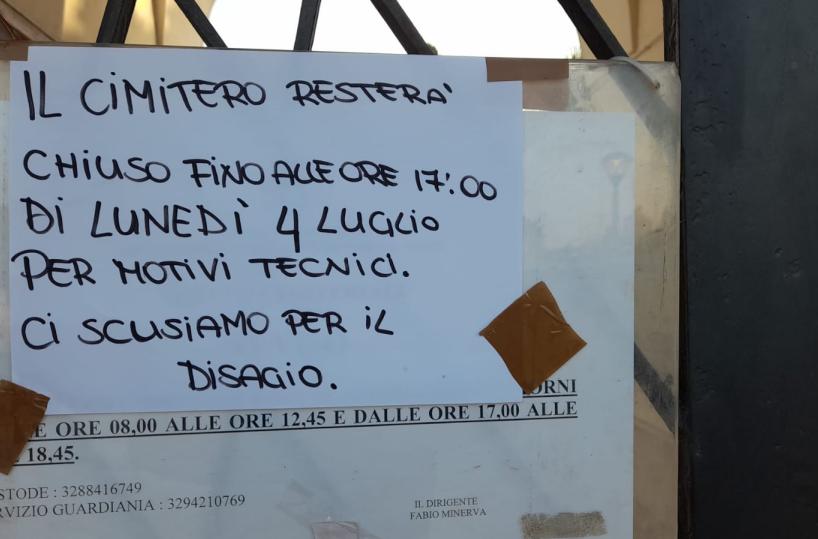 IL CIMITERO RESTERA'
CHIUSO FINO ALLE ORE 17:00
DI LUNEDÌ 4 LUGLIO
PER MOTIVI TECNICI.
CI SCUSIAMO PER IL
DISAGIO.
ORNI
E ORE 08,00 ALLE ORE 12,45 E DALLE ORE 17,00 ALLE
18,45.
STODE : 3288416749
RVIZIO GUARDIANIA : 3294210769
IL DIRIGENTE
FABIO MINERVA